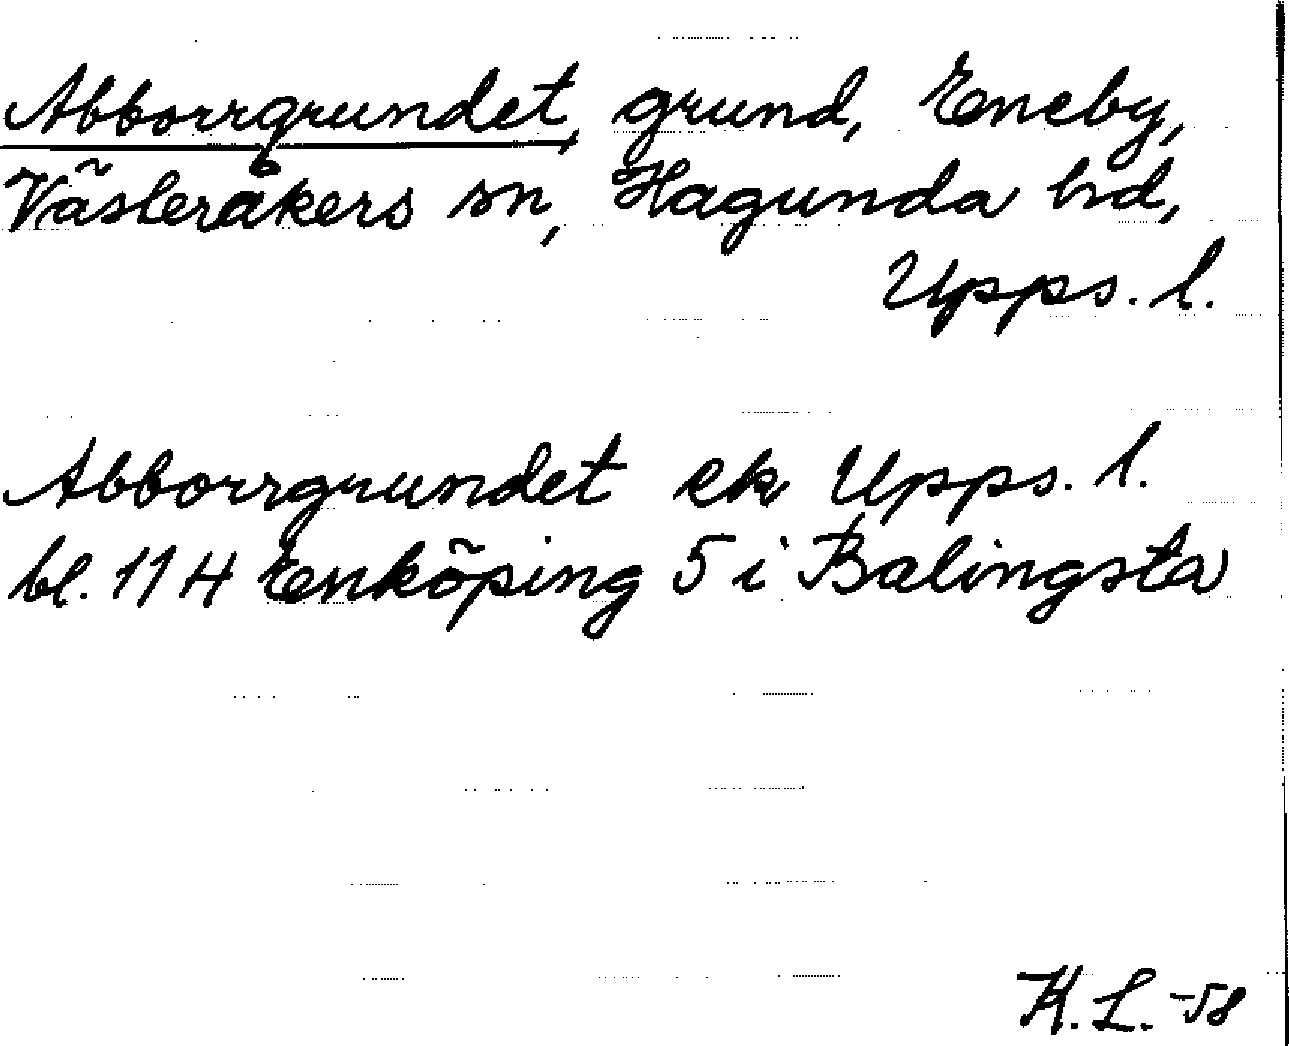 Abborrgrundet, grund, Eneby,
Västeråkers sn, Hagunda hd,
Upps. l.
Abborrgrundet ek Upps. l.
bl. 11 H Enköping 5 i Balingsta
K. L. -58